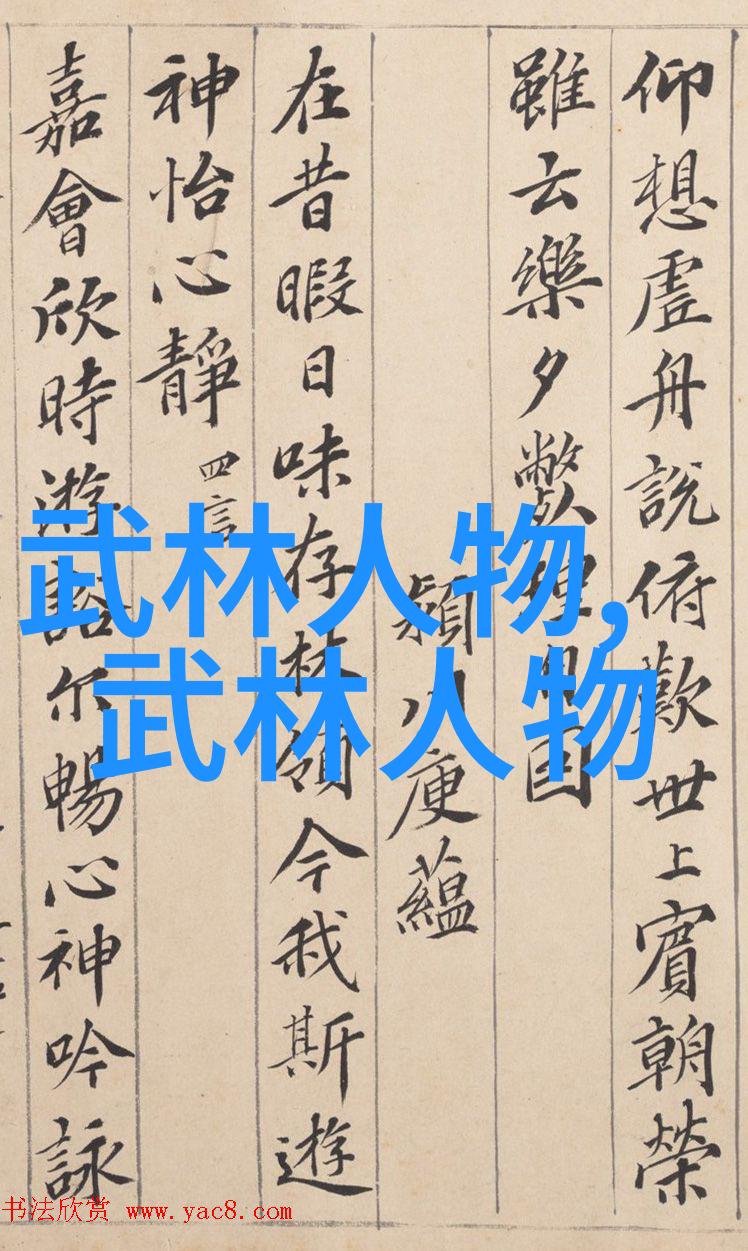 仰想虗舟說俯歎世上賓朝榮
雖云樂夕斃理自因
潁川庾蘊
在昔暇日味存林領今我斯遊
神怡心靜 四言
嘉會欣時游豁尔暢心神吟詠
武林人物,
武林人物
书法欣赏 www.yac8.com